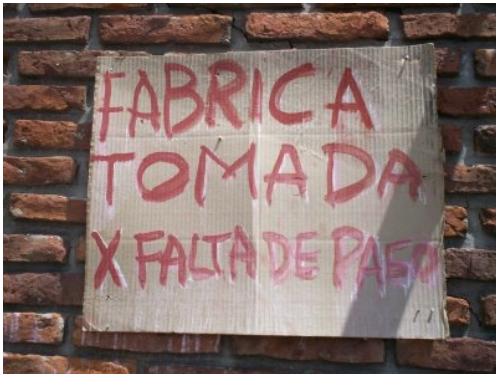 FABRICA
TOMADA
X FALTA DE PAGO